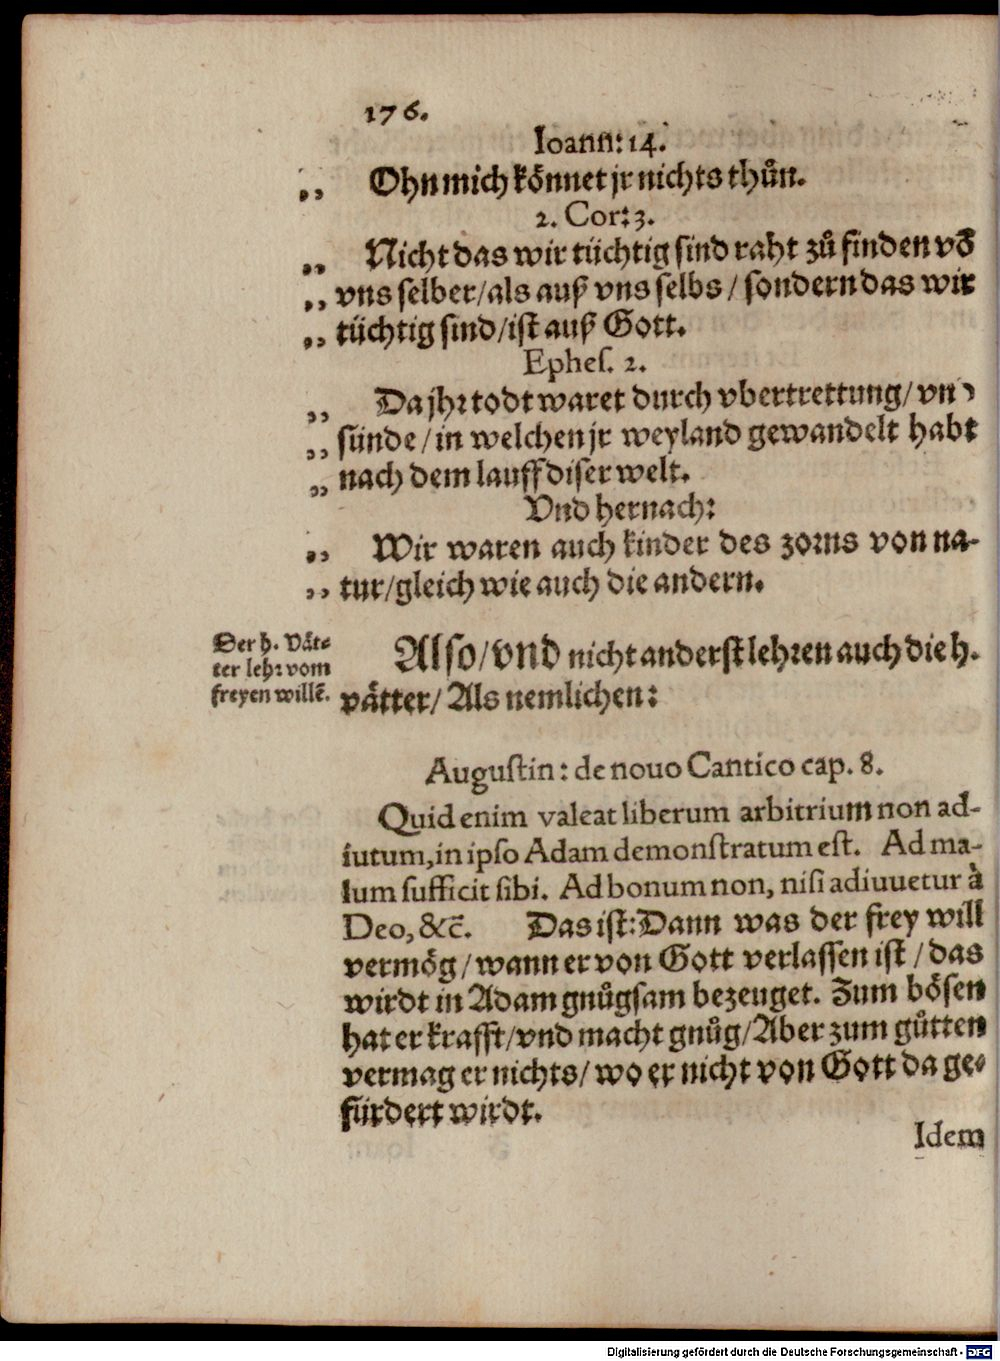 176.
Ioann: 14.
„ Ohn mich könnet jr nichts thůn.
2. Cor: 3.
„ Nicht das wir tüchtig sind raht zů finden võ
„ vns selber/als auß vns selbs/ sondern das wir
„ tüchtig sind/ist auß Gott.
Ephes. 2.
„ Da jhr todt waret durch vbertrettung/ vnd
„ sünde/in welchen jr weyland gewandelt habt
„ nach dem lauff diser welt.
Vnd hernach:
„ Wir waren auch kinder des zorns von na-
„ tur/gleich wie auch die andern.
Der h. Vät-
ter lehr vom
freyen willẽ.
Also/vnd nicht anderst lehren auch die h.
vätter/ Als nemlichen:
Augustin: de nouo Cantico cap. 8.
Quid enim valeat liberum arbitrium non ad-
iutum, in ipso Adam demonstratum est. Ad ma-
lum sufficit sibi. Ad bonum non, nisi adiuuetur à
Deo, &c̃. Das ist: Dann was der frey will
vermög/wann er von Gott verlassen ist/das
wirdt in Adam gnůgsam bezeuget. Zum bösen
hat er krafft/vnd macht gnůg/Aber zum gůtten
vermag er nichts/ wo er nicht von Gott da ge-
fürdert wirdt.
Idem
Digitalisierung gefördert durch die Deutsche Forschungsgemeinschaft - DFG